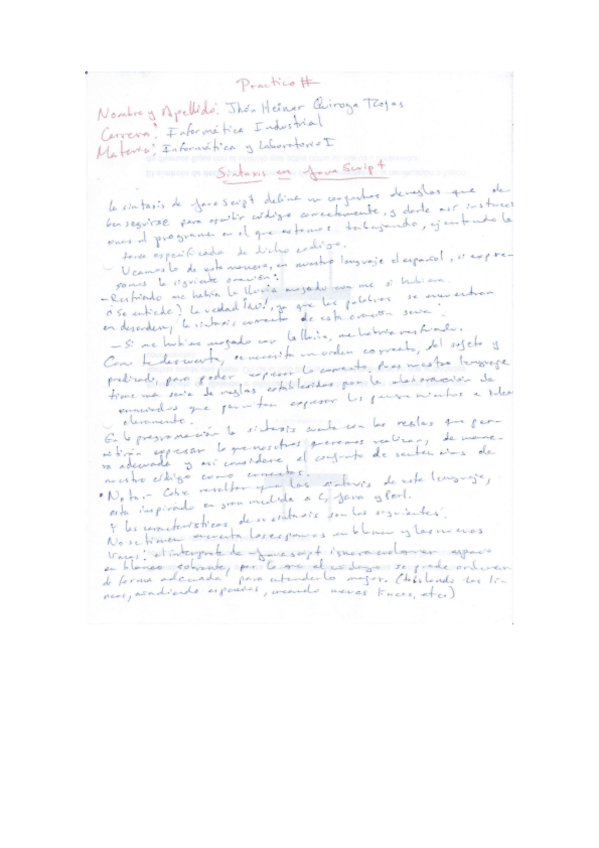 Practico #
Nombre y Apellido: Jhón Heiner Quiroga Rojas
Carrera: Informática Industrial
Materia: Informática y Laboratorio I
Sintaxis en JavaScript
La sintaxis de JavaScript define un conjuntos de reglas que de
ben seguirse para escribir código correctamente, y darle así instrucc
iones al programa en el que estamos trabajando, ejecutando la
tarea especificada de dicho código.
Veamoslo de esta manera, en nuestro lenguaje el español, si expre-
samos la siguiente oración:
- Resfriado me había la lluvia mojado con me si hubiera.
¿Se entiende? la verdad , ya que las palabras se encuentran
en desorden, la sintaxis correcta de esta oración sería:
- Si me hubiera mojado con la lluvia, me habría resfriado.
Como te das cuenta, se necesita un orden correcto, del sujeto y
predicado, para poder expresar lo correcto. Pues nuestro lenguaje
tiene una serie de reglas establecidas para la elaboración de
enunciados que permitan expresar los pensamientos e ideas
claramente.
En la programación la sintaxis cuenta con las reglas que per-
mitirán expresar lo que nosotros queremos realizar, de mane-
ra adecuada y así considere el conjunto de sentencias de
nuestro código como correctos.
• Nota.- Cabe resaltar que las sintaxis de este lenguaje,
está inspirado en gran medida a C, Java y Perl.
Y las características, de su sintaxis son las siguientes:
No se tienen en cuenta los espacios en blanco y las nuevas
líneas: el interprete de JavaScript ignora cualquier espacio
en blanco sobrante, por lo que el código se puede ordenar
de forma adecuada para entenderlo mejor. (tabulando las lí-
neas, añadiendo espacios, creando nuevas líneas, etc.)